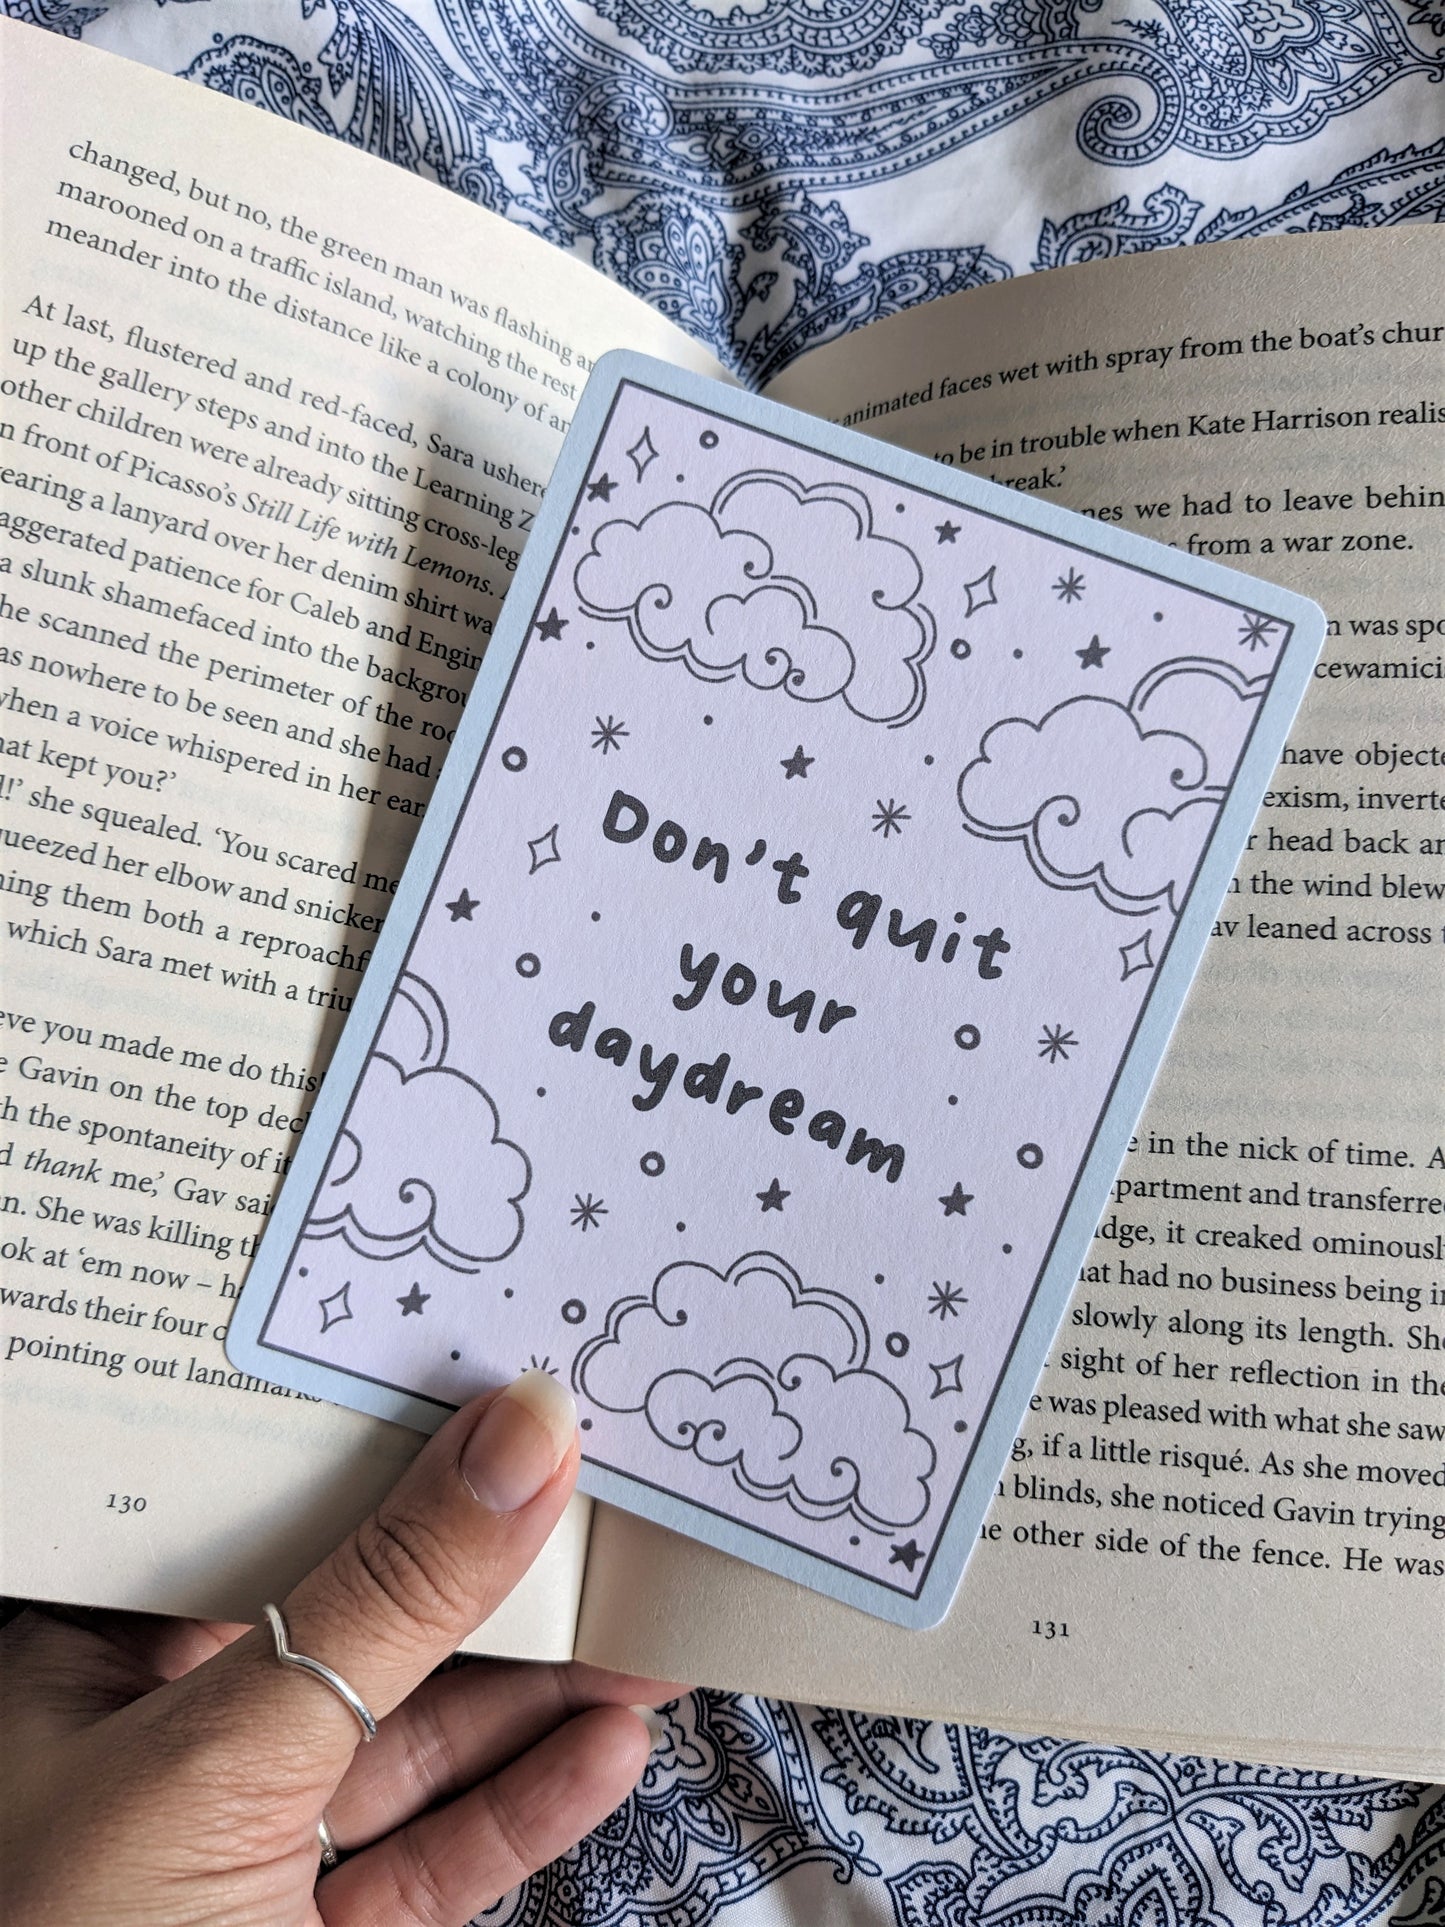 changed, but no, the green man was flashing
marooned on a traffic island, watching the rest
meander into the distance like a colony of
At last, flustered and red-faced, Sara
up the gallery steps and into the Learning
other children were already sitting
front of Picasso's Still Life with Lemons.
a lanyard over her denim shirt
patience for Caleb and
slunk shamefaced into the
he scanned the perimeter of the
nowhere to be seen and she had
when a voice whispered in her ear.
kept you?'
she squealed. 'You scared me
her elbow and
them both a
which Sara met with a
you made me do this!
Gavin on the top
the spontaneity of
thank me,' Gav
She was killing
at 'em now –
their four
pointing out landmarks
130
animated faces wet with spray from the boat's
to be in trouble when Kate Harrison
we had to leave
from a war zone.
was
have
head back
the wind blew
leaned across
in the nick of time.
and transferred
it creaked
had no business being
slowly along its length.
sight of her reflection in the
was pleased with what she saw
if a little risqué. As she moved
blinds, she noticed Gavin trying
other side of the fence. He was
131
Don't quit
your
daydream